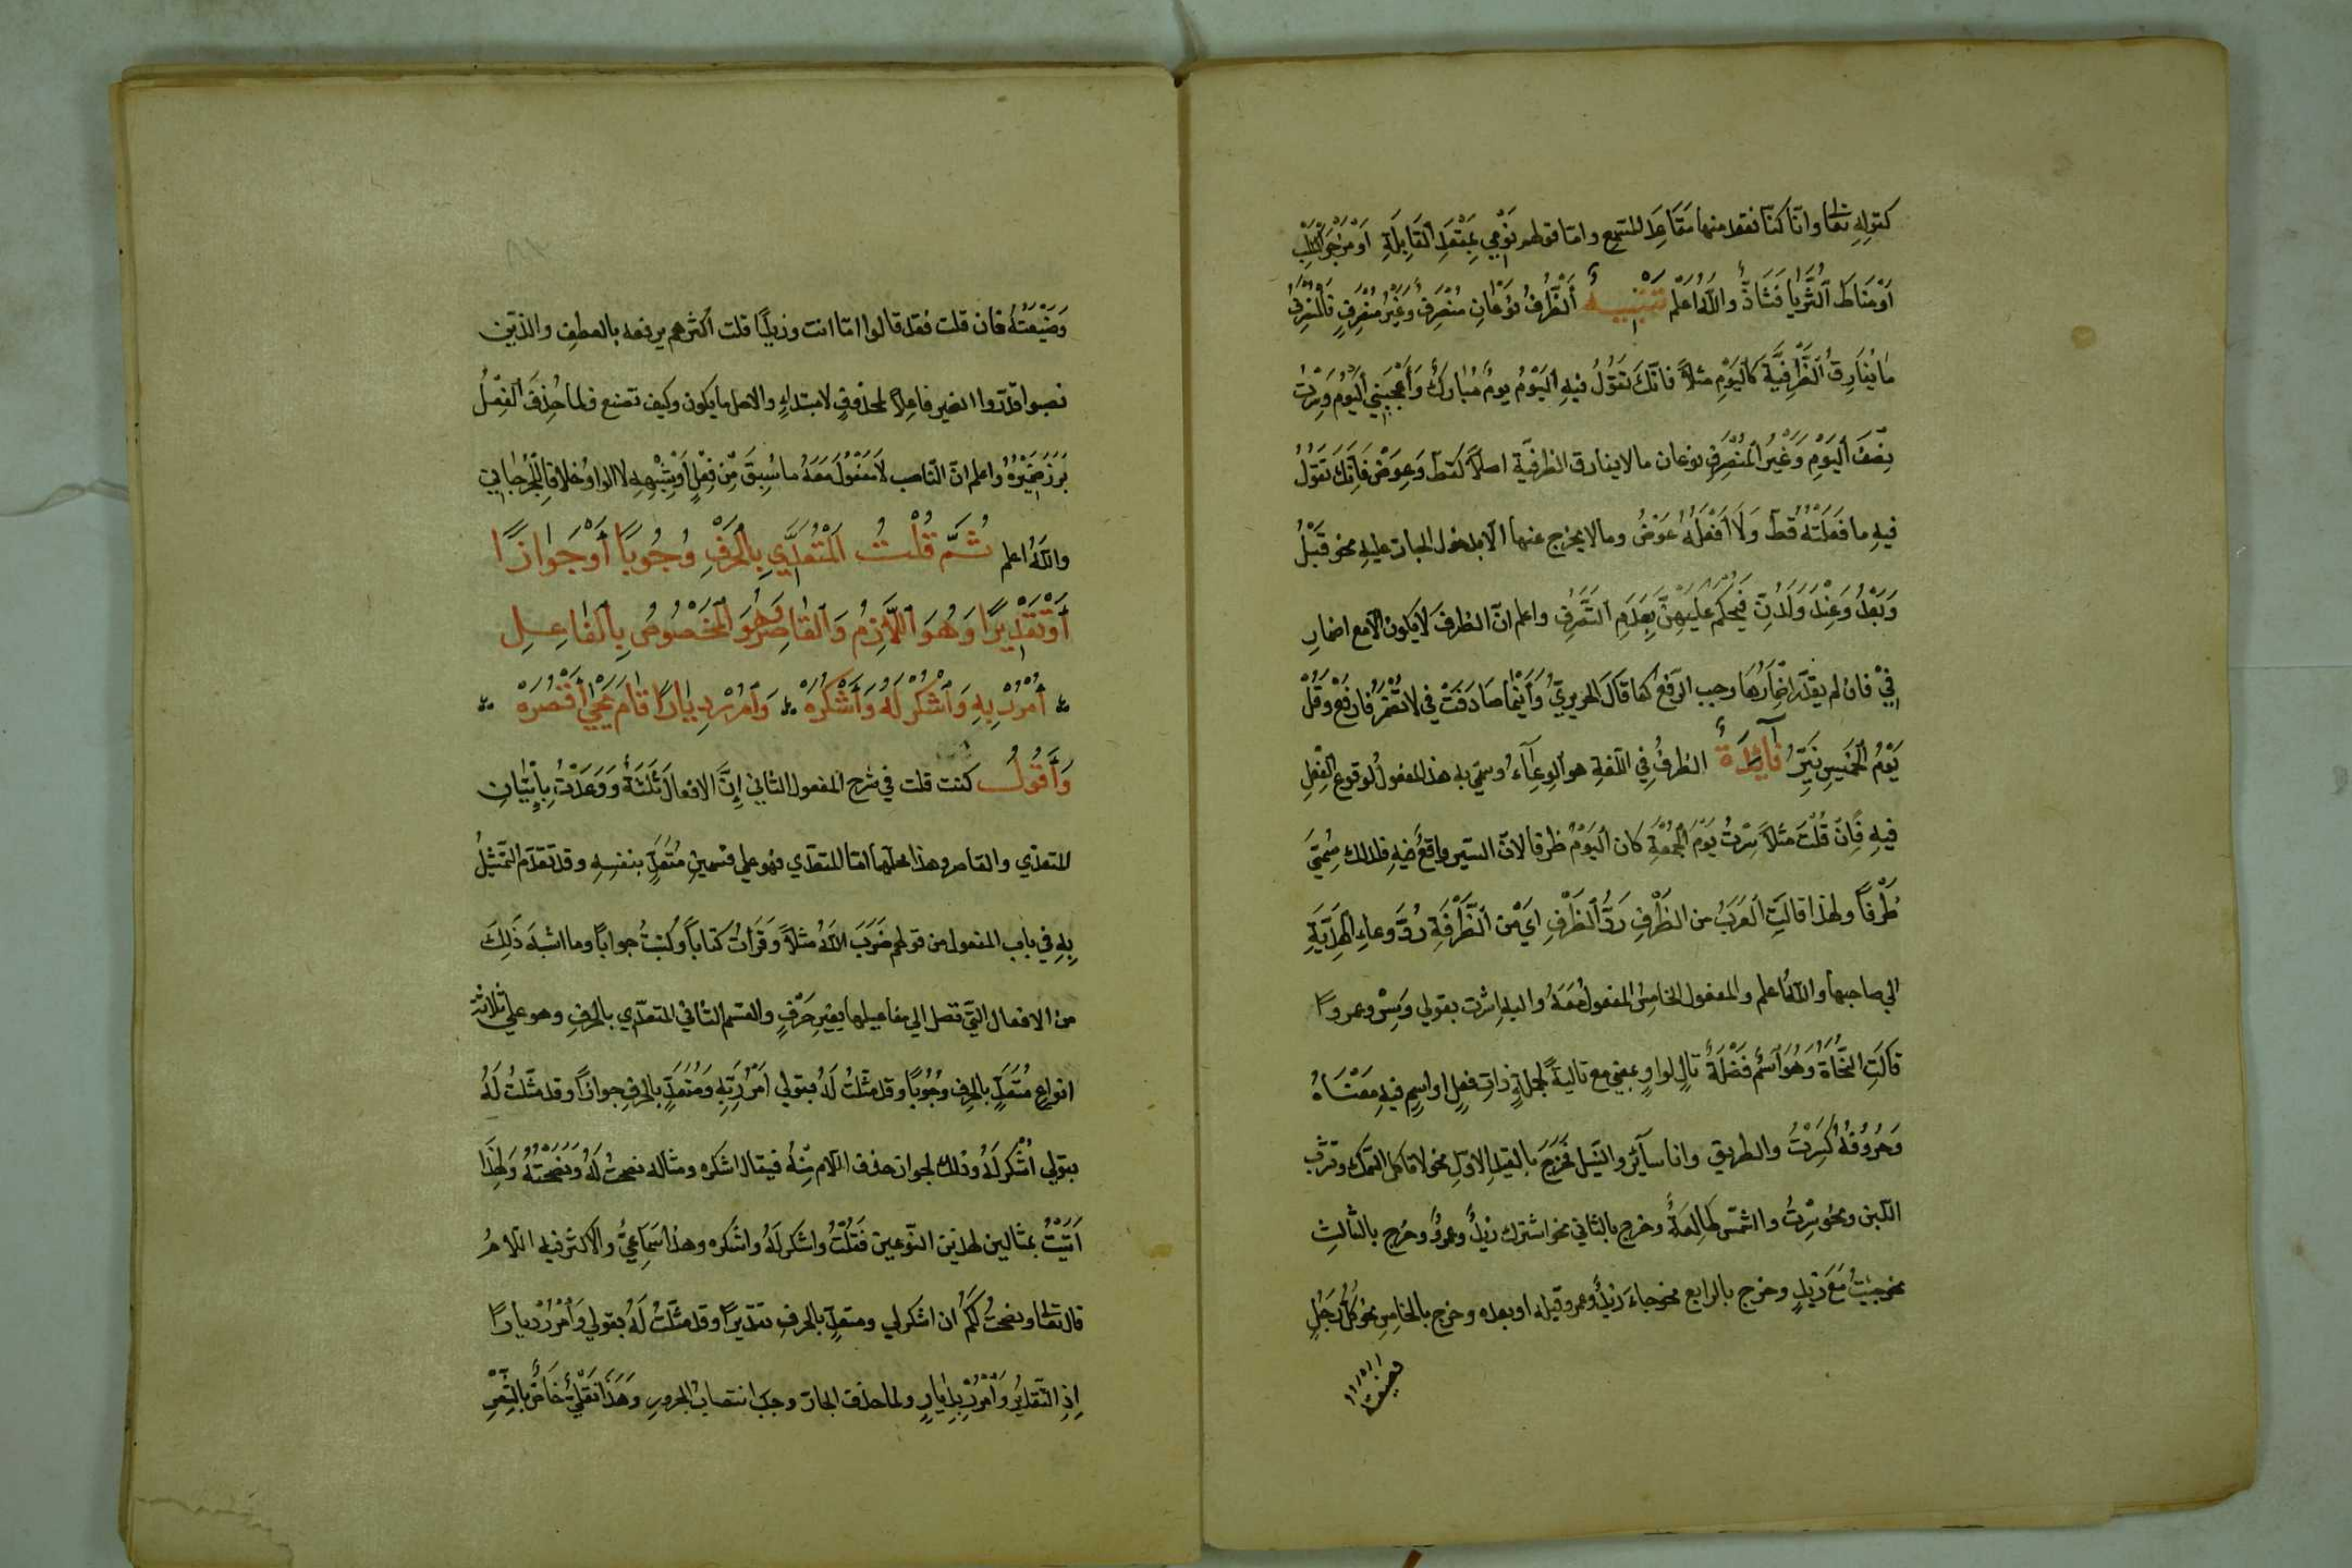 كقوله تعالى وانّا كنّا نقعد منها مَقَاعِدَ للسّمع وامّا قولهم نَوْمِي بِمَقْعَدِ ٱلقَابِلَةِ اَوْ مَزْجَرَ ٱلكَلْبِ
اَوْ مَنَاطَ ٱلثُّرَيَّا فَشَاذٌّ واللّٰهُ اَعْلَم تَنْبِيهٌ أَلظَّرْفُ نَوْعَانِ مُتَصَرِّفٌ وَغَيْرُ مُتَصَرِّفٍ فَالْمُتَصَرِّفُ
مَا يُفَارِقُ ٱلظَّرْفِيَّةَ كَالْيَوْمِ مثلاً فانّكَ تَقُوْلُ فيهِ اَليَوْمُ يومٌ مُبَارَكٌ وَأَعْجَبَنِي ٱليَوْمُ وَسِرْتُ
نِصْفَ ٱليَوْمِ وَغَيْرُ ٱلْمُتَصَرِّفِ نوعان مالا يفارق الظرفيّة اصلاً كقطّ وَعِوَضْ فَاِنَّكَ تَقُوْلُ
فيهِ ما فَعَلْتُهُ قَطُّ وَلَا اَفْعَلُهُ عَوْضُ ومالا يخرج عنها الّا بدخول الجارّ عليهِ نحو قَبْلُ
وَبَعْدُ وَعِنْدَ وَلَدُنْ فَيُحْكَمُ عَلَيْهِنَّ بِعَدَمِ التَّصَرُّفِ واعلم انّ الظرفَ لا يكون الّا مع اضمارِ
فِيْ فان لم يقدّر اِضْمَارُهَا وجب الرّفعُ كما قَالَ الحريريُّ وَأَيْنَمَا صَادَفْتَ فِي لا تُضْمَرُ فارفَعْ وَقُلْ
يَوْمُ ٱلْخَمِيسِ نَيِّرُ فَآئِدَةٌ الظرفُ في اللّغةِ هو ٱلوِعَآءُ وسمّي به هذا المفعولُ لوقوع الفِعْلِ
فيهِ فَاِنْ قُلْتَ مثلاً سِرْتُ يَوْمَ ٱلْجُمُعَةِ كان ٱليَوْمُ ظرفا لانّ السّير واقعٌ فيهِ فلذلك سُمِّيَ
ظَرْفاً ولهذا قالتِ ٱلعَرَبُ من الظَّرْفِ رَدُّ ٱلظَّرْفِ اي من ٱلظَّرْفَةِ رَدُّ وعاءِ ٱلْهَدِيَّةِ
الي صاحبها واللّٰهُ اعلم والمفعول الخامس المفعول مَعَهُ واليهِ اشرت بقولي وَسِرْ وعمروًا
قَالَتِ النُّحَاةُ وَهُوَ ٱسْمٌ فَضْلَةٌ تالٍ لواوٍ بمعني مع تاليةً لجملةٍ ذاتِ فعلٍ او اسمٍ فيهِ مَعْنَاهُ
وَحُرُوْفُهُ كَسِرْتُ والطريق وانا سآئر والنّيل فَخَرَجَ بالقيد الاوّلِ نحو لا تاكل السّمك وتشرب
اللّبن ونحو سِرْتُ والشمسُ طَالِعَةٌ وخرج بالثاني نحو اشترك زيدٌ وعمروٌ وخرج بالثّالثِ
نحو جِئتُ مَعَ زيدٍ وخرج بالرابع نحو جاءَ زيدٌ وعمرو قبله او بعده وخرج بالخامس نحو كُلُّ رَجُلٍ
وَضَيْعَتُهُ فان قلت فقد قالوا امّا انت وزيدًا قلت أكثرهم يرفعه بالعطفِ والذين
نصبوا قدّروا الضمير فاعلاً لمحذوفٍ لا مبتداءٍ والاصل ما يكون وكيف تصنع فلما حُذِفَ ٱلفِعْلُ
بَرَزَ ضَمِيْرُهُ واعلم انّ النّاصب لَلْمَفْعُوْلِ مَعَهُ ما سُبِقَ مِن فِعْلٍ أَوْ شِبْهِهِ لا الواو خلافًا لِلْجُرْجَانِي
واللّٰهُ اعلم ثُمَّ قُلْتُ اَلْمُتَعَدِّي بِالْحَرْفِ وُجُوبًا أَوْ جَوَازًا
أَوْ تَقْدِيْرًا وَهُوَ ٱللَّازِمُ وَٱلقَاصِرُ وَهُوَ ٱلْمَخْصُوْصُ بِٱلفَاعِلِ
أُمْرُرْ بِهِ وَٱشْكُرْ لَهُ وَٱشْكُرَهْ وَٱمْرُرْ دِيَارًا قَامَ يَحْيٰي ٱقْتَصَرَهْ
وَأَقُوْلُ كنت قلت في شرح المفعول الثاني إِنَّ الافعالَ ثَلَثَةٌ وَوَعَدْتُ بِاِتْيَانِ
المتعدّي والقاصر وهذا محلّهما امّا المتعدّي فهو علي قسمينِ مُتَعَدٍّ بنفسِهِ وقد تقدّم التّمثيلُ
بِهِ في باب المفعول من قولهم ضَرَبَ اللّٰهُ مثلاً وَقَرَأتُ كتاباً وكَتَبتُ جواباً وما اشبهَ ذَلِكَ
من الافعال الّتي تصل الي مفاعيلها بغيرِ حَرْفٍ والقسم الثاني المتعدّي بالحرفِ وهو علي ثلاثة
انواع مُتَعَدٍّ بالحرفِ وجُوْبًا وقد مثّلتُ لَهُ بقولي اُمْرُرْ بِهِ وَمُتَعَدٍّ بالحرفِ جوازًا وقد مثّلتُ لَهُ
بقولي اُشْكُرْ لَهُ وذلك لجواز حذف اللّام مِنْهُ فيقال اشكره ومثاله نصحتُ لَهُ وَنَصَحْتُهُ وَلِهَذَا
اَتَيْتُ بمثالين لهذين النّوعين فَقُلْتُ واشكر لَهُ واشكره وهذا سَمَاعِيٌّ والاكثر فيه اللّامُ
قال تعالى ونصحتُ لكُم ان اشكر لي ومتعدٍّ بالحرفِ تقديرًا وقد مثّلتُ لَهُ بقولي وَٱمْرُرْ ديارًا
اِذِ التّقديرُ وَٱمْرُرْ بِدِيَارٍ ولما حذف الجارّ وجب انتصابُ المجرورِ وَهَذَا نَقْلِيٌّ خَاصٌّ بالشِّعْرِ